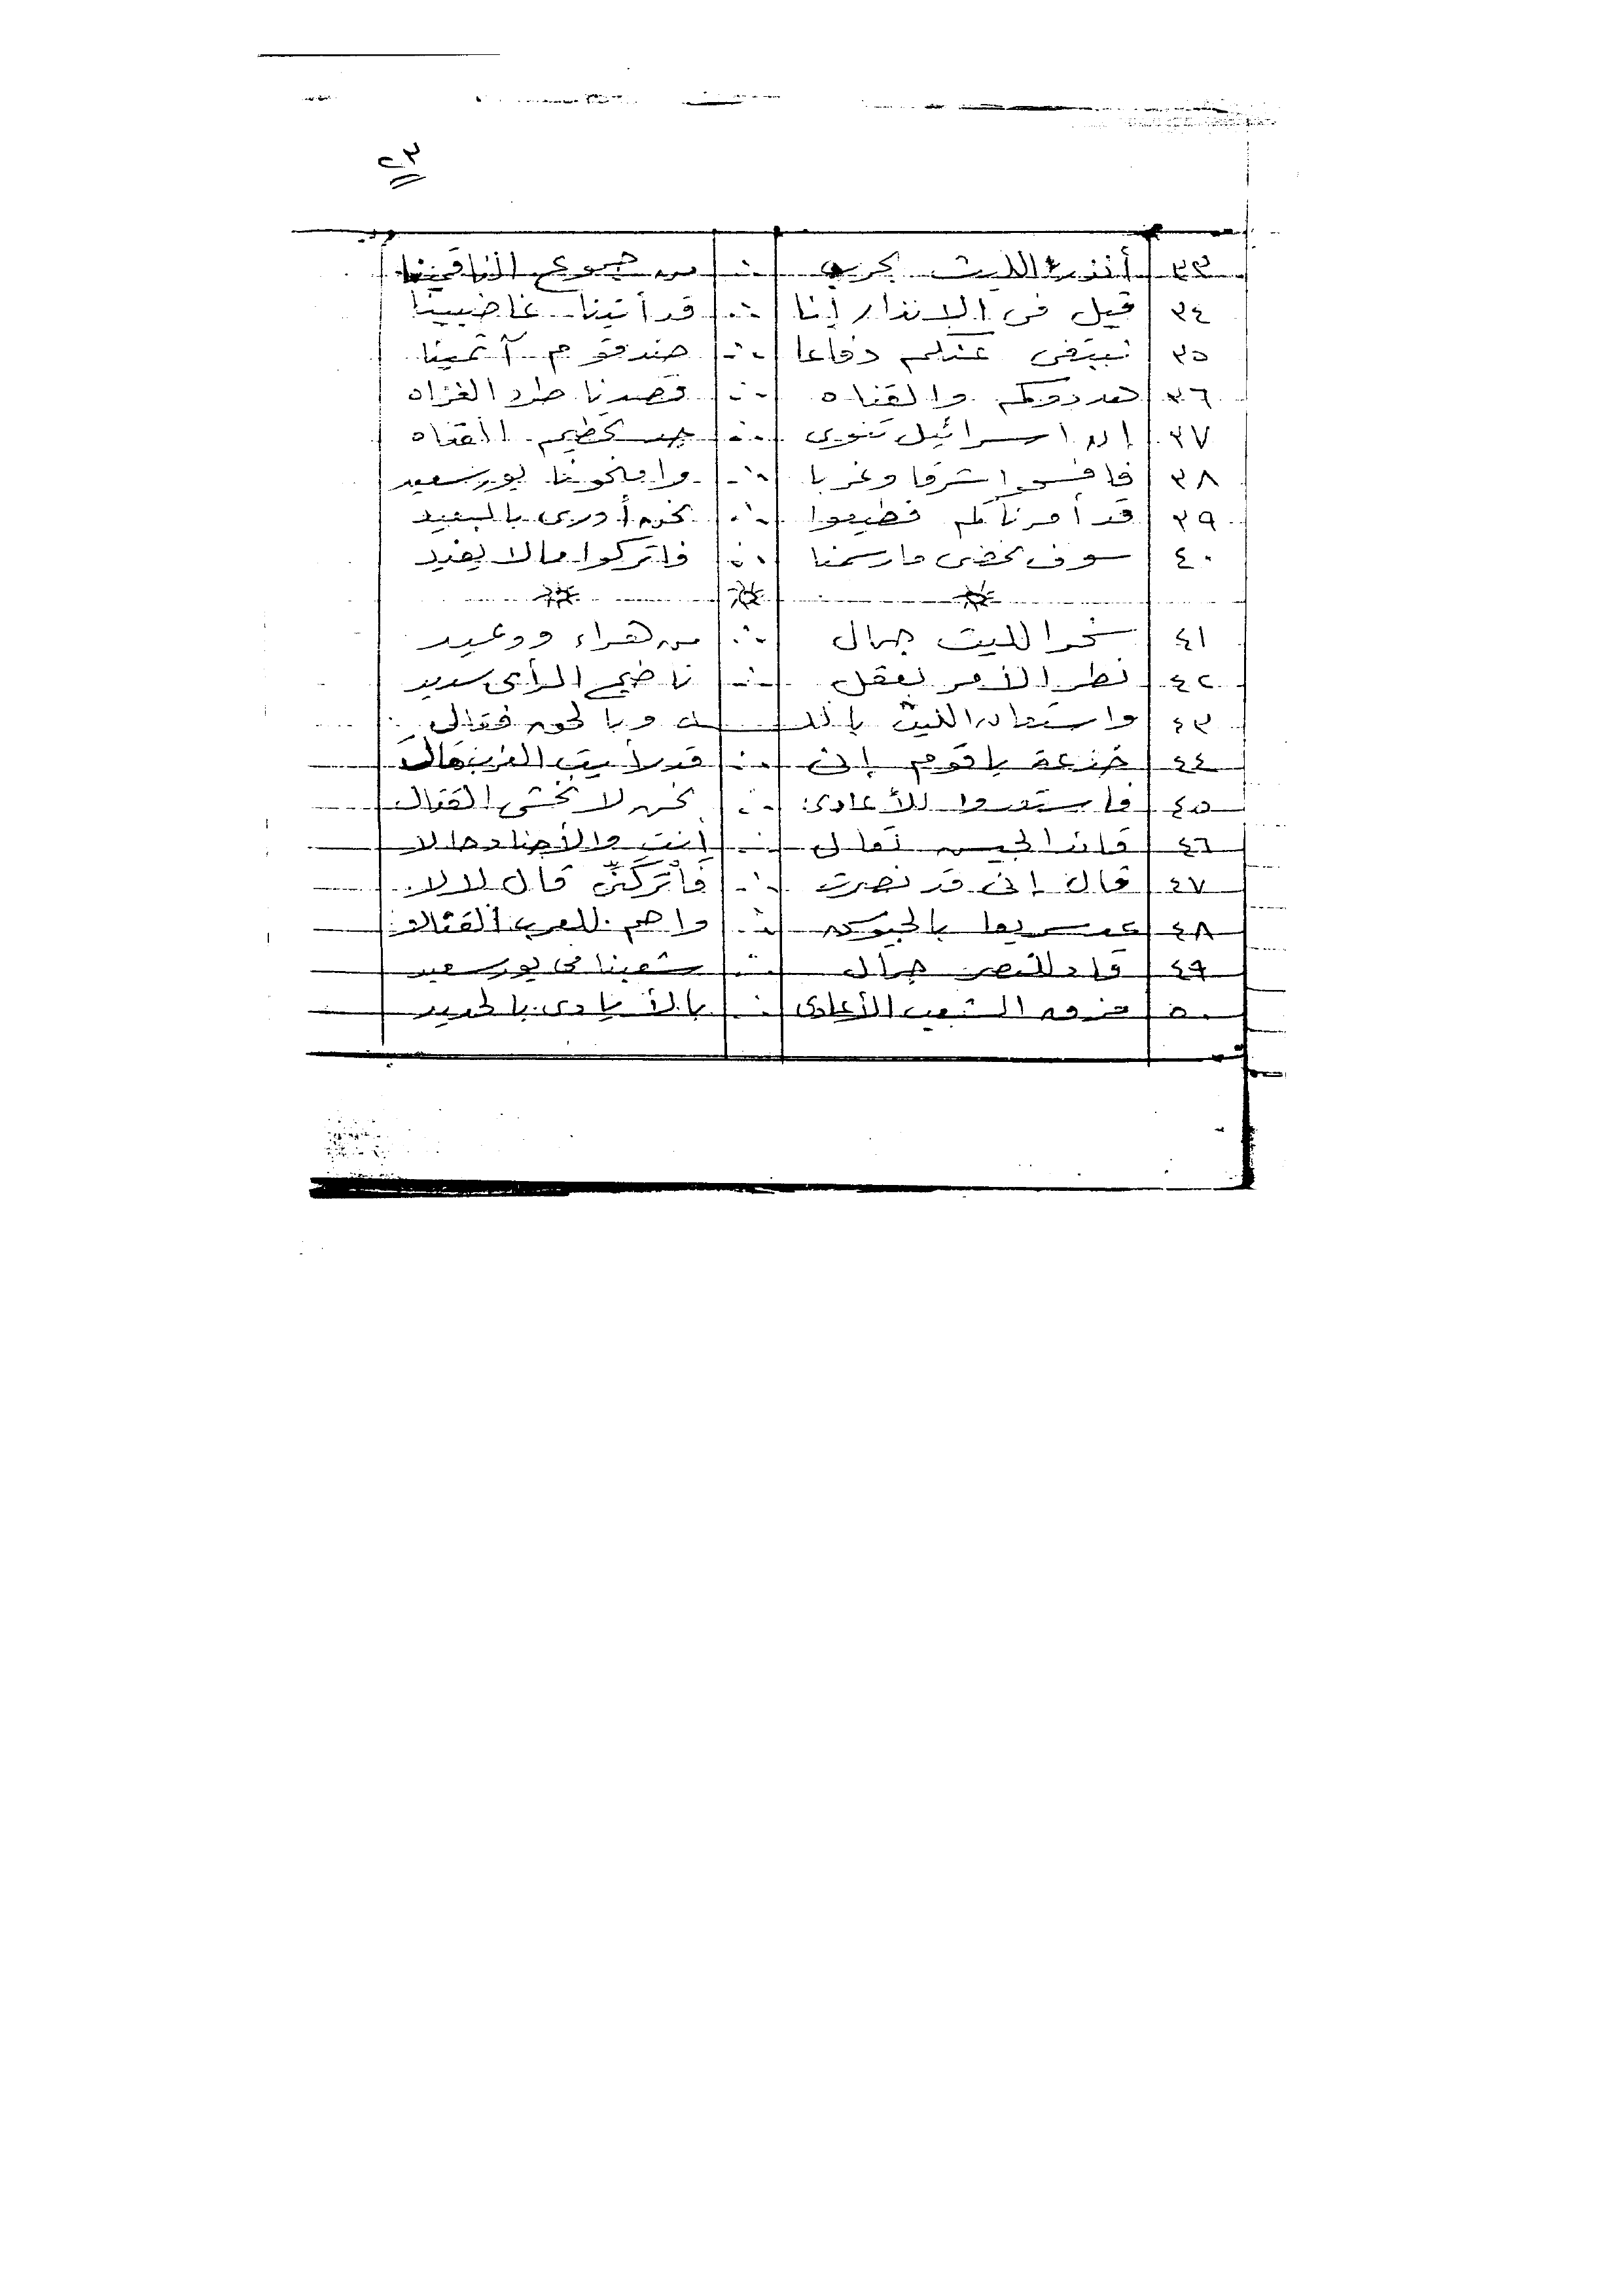 ٢٣
٣٣ أنذر الليث بحرب ∴ من جموع الناقمينا
٣٤ قيل فى الإنذار إنا ∴ قد أتينا غاضبينا
٣٥ نبتغى عنكم دفاعا ∴ ضد قوم آثمينا
٣٦ هددوكم والقناه ∴ قصدنا طرد الغزاه
٣٧ إن اسرائيل تنوى ∴ تحطيم القناه
٣٨ فافسحوا شرقا وغربا ∴ وامنحونا بورسعيد
٣٩ قد أمرناكم فطيعوا ∴ نحن أدرى بالبعيد
٤٠ سوف نمضى ما رسمنا ∴ فاتركوا ما لا يفيد
٤١ سخر الليث جمال ∴ من هراء ووعيد
٤٢ نظر الأمر بعقل ∴ ناضج الرأى سديد
٤٣ واستعان الليث بالله وبالحق فقال
٤٤ يا قوم إنى ∴ قد رأيت الغرب مال
٤٥ فاستعدوا للأعادى ∴ نحن لا نخشى القتال
٤٦ قائد الجيش تعالى ∴ أنت والأجناد حالا
٤٧ قال إنى قد نصرت ∴ فاتركنّى قال لا لا
٤٨ عد سريعا بالجيوش ∴ واحم للعرب القنالا
٤٩ قاد للنصر جمال ∴ شعبنا فى بورسعيد
٥٠ مزق الشعب الأعادى ∴ بالأيادى بالحديد